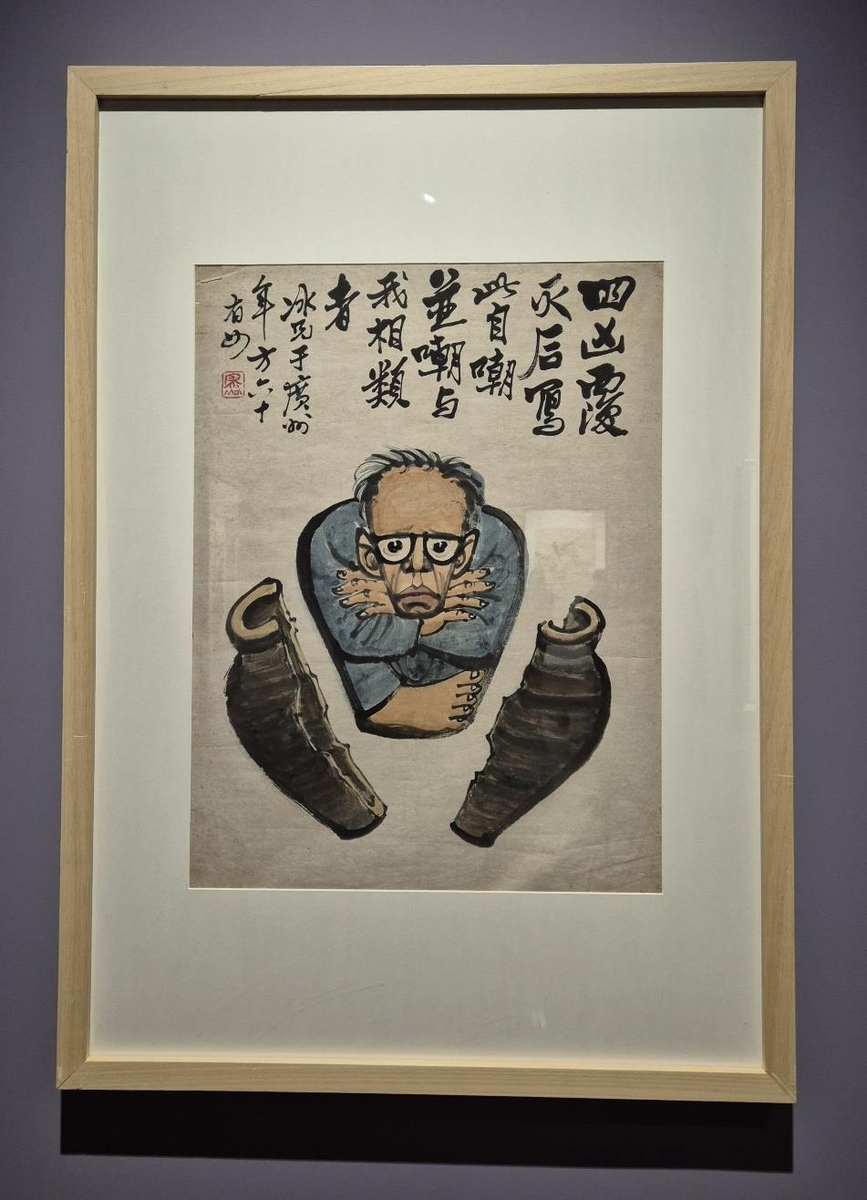 四凶覆
灭后寫
此自嘲
並嘲与
我相類
者
冰兄于廣州
年方六十
有四